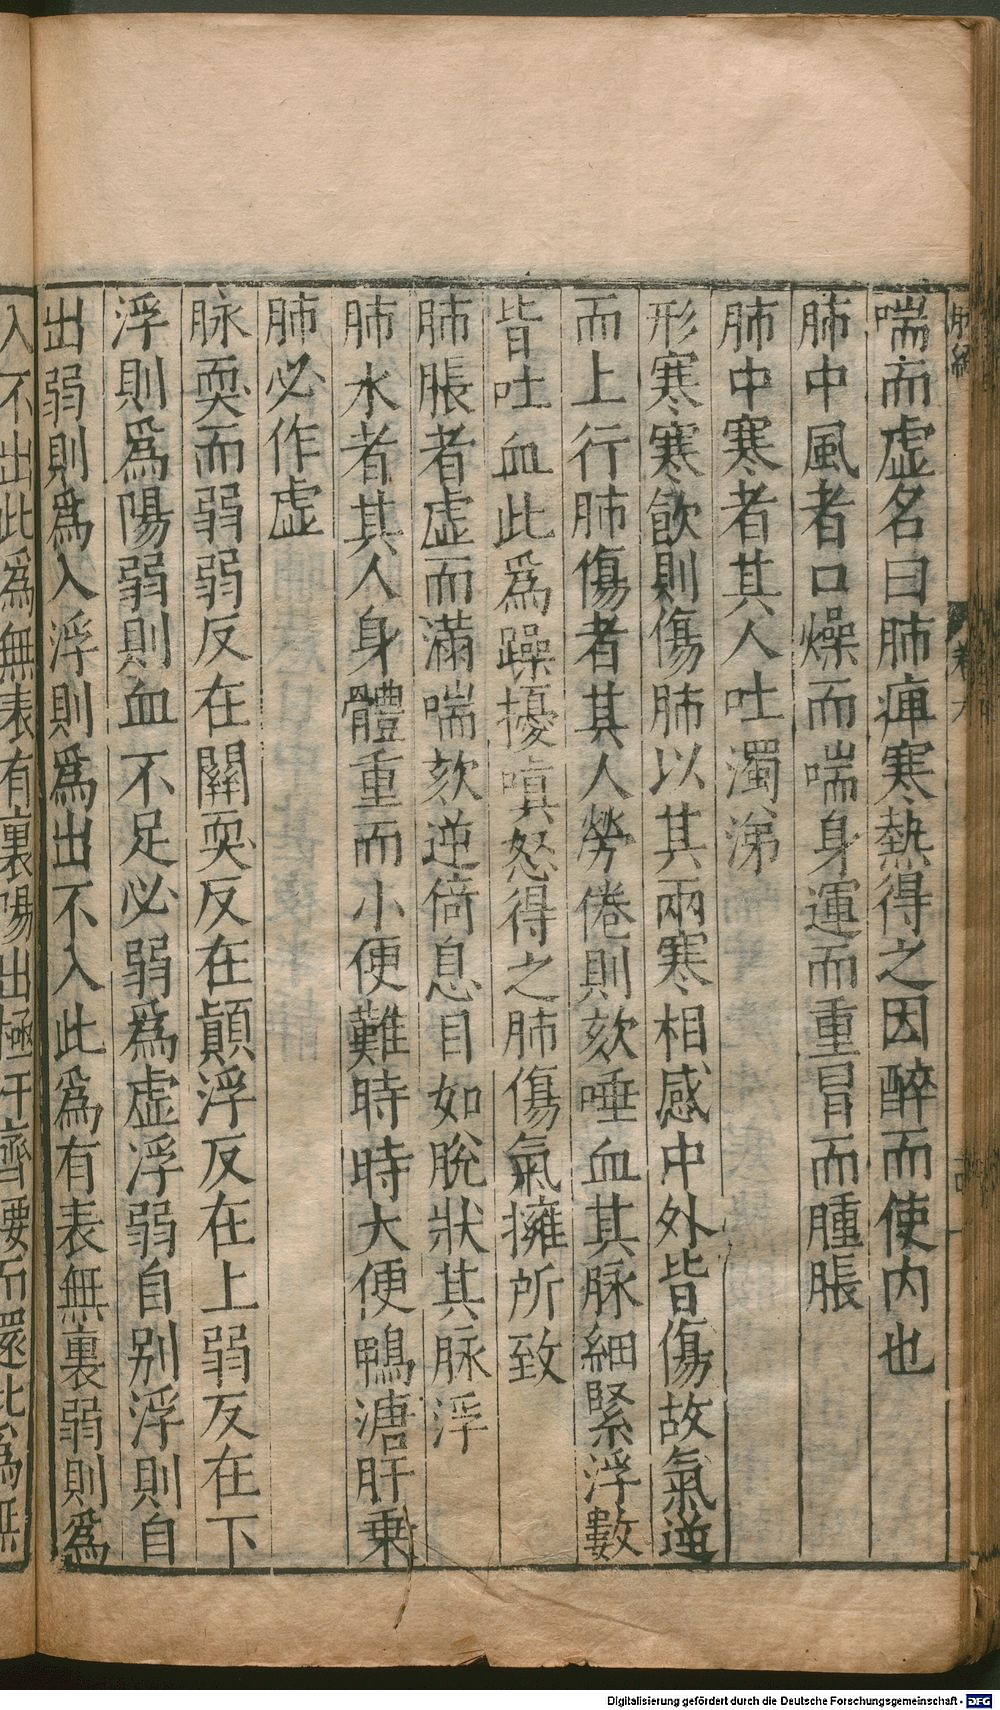 喘而虚名曰肺痺寒熱得之因醉而使内也
肺中風者口燥而喘身運而重冒而腫脹
肺中寒者其人吐濁涕
形寒寒飲則傷肺以其兩寒相感中外皆傷故氣逆
而上行肺傷者其人勞倦則欬唾血其脉細緊浮數
皆吐血此爲躁擾嗔怒得之肺傷氣擁所致
肺脹者虚而滿喘欬逆倚息目如脫狀其脉浮
肺水者其人身體重而小便難時時大便鴨溏肝乗
肺必作虚
脉耎而弱弱反在關耎反在顚浮反在上弱反在下
浮則爲陽弱則血不足必弱爲虚浮弱自别浮則自
出弱則爲入浮則爲出不入此爲有表無裏弱則爲
入不出此爲無表有裏陽出極汗齊腰而還此爲無
卷六
Digitalisierung gefördert durch die Deutsche Forschungsgemeinschaft - DFG